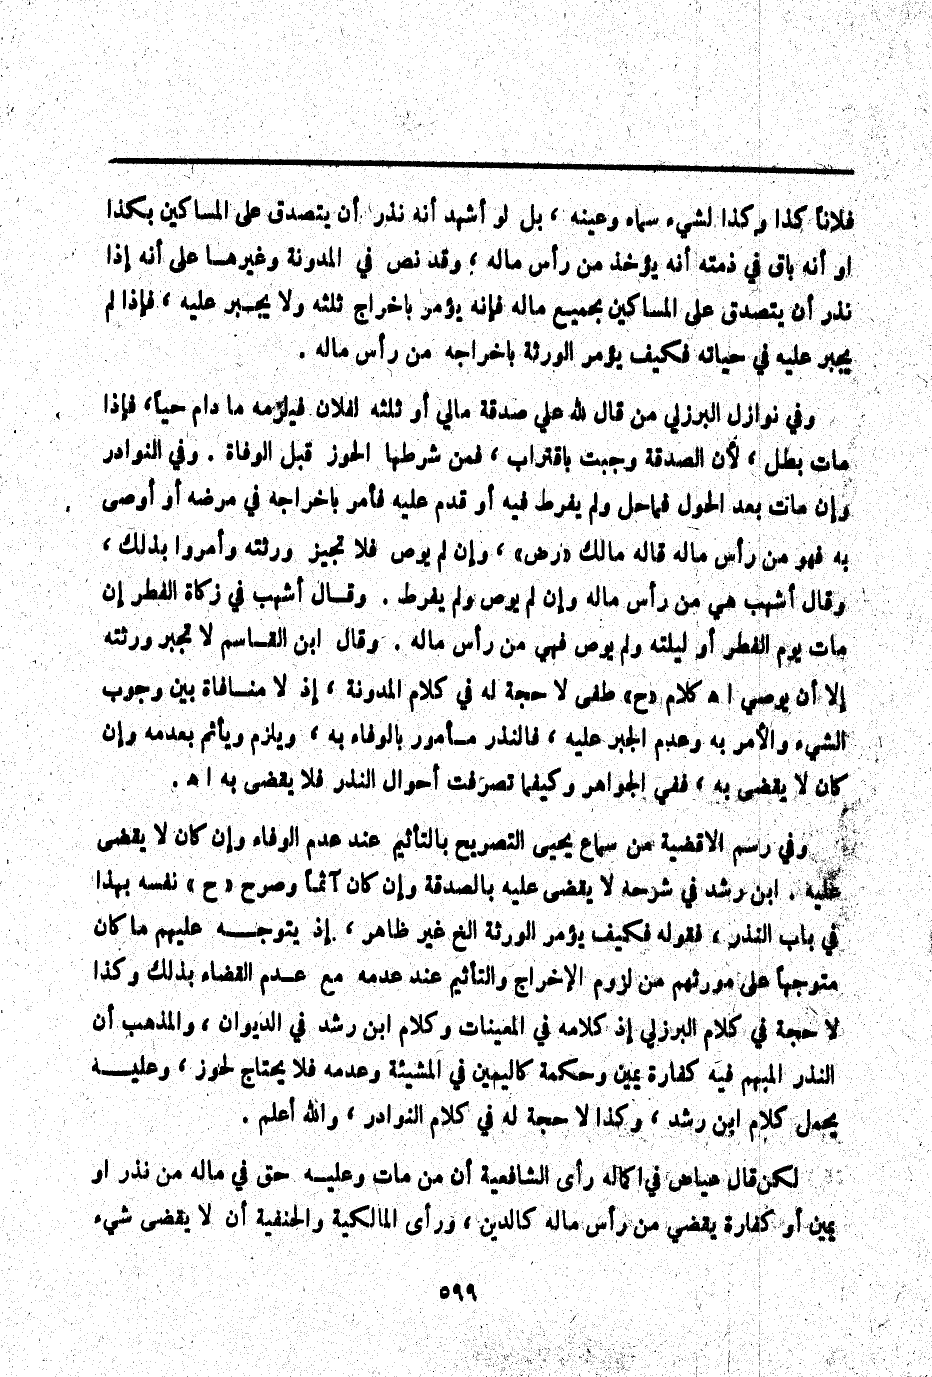 فلاناً كذا وكذا لشيء سماه وعينه ، بل لو أشهد أنه نذر أن يتصدق على المساكين بكذا
او أنه باق في ذمته أنه يؤخذ من رأس ماله ؛ وقد نص في المدونة وغيرها على أنه إذا
نذر أن يتصدق على المساكين بجميع ماله فإنه يؤمر باخراج ثلثه ولا يجبر عليه ، فإذا لم
يجبر عليه في حياته فكيف يؤمر الورثة باخراجه من رأس ماله .
وفي نوازل البرزلي من قال لله علي صدقة مالي أو ثلثه لفلان فيلزمه ما دام حياً، فإذا
مات بطل ، لأن الصدقة وجبت باقتراب ، فمن شرطها الحوز قبل الوفاة . وفي النوادر
وإن مات بعد الحول فماحل ولم يفرط فيه أو قدم عليه فأمر باخراجه في مرضه أو أوصى
به فهو من رأس ماله قاله مالك «رض» ، وإن لم يوص فلا تجيز ورثته وأمروا بذلك ،
وقال أشهب هي من رأس ماله وإن لم يوص ولم يفرط . وقال أشهب في زكاة الفطر إن
مات يوم الفطر أو ليلته ولم يوص فهي من رأس ماله . وقال ابن القاسم لا تجبر ورثته
إلا أن يوصي ا ه كلام «ح» طفى لا حجة له في كلام المدونة ، إذ لا منافاة بين وجوب
الشيء والأمر به وعدم الجبر عليه ، فالنذر مأمور بالوفاء به ، ويلزم ويأثم بعدمه وإن
كان لا يقضى به ، ففي الجواهر وكيفما تصرفت أحوال النذر فلا يقضى به ا ه .
وفي رسم الاقضية من سماع يحيى التصريح بالتأثيم عند عدم الوفاء وإن كان لا يقضى
عليه . ابن رشد في شرحه لا يقضى عليه بالصدقة وإن كان آثماً وصرح « ح » نفسه بهذا
في باب النذر ، فقوله فكيف يؤمر الورثة الخ غير ظاهر ، إذ يتوجه عليهم ما كان
متوجهاً على مورثهم من لزوم الإخراج والتأثيم عند عدمه مع عدم القضاء بذلك وكذا
لا حجة في كلام البرزلي إذ كلامه في المعينات وكلام ابن رشد في الديوان ، والمذهب أن
النذر المبهم فيه كفارة يمين وحكمة كاليمين في المشيئة وعدمه فلا يحتاج لحوز ، وعليه
يحمل كلام ابن رشد ، وكذا لا حجة له في كلام النوادر ، والله أعلم .
لكن قال عياض في اكماله رأى الشافعية أن من مات وعليه حق في ماله من نذر او
يمين أو كفارة يقضي من رأس ماله كالدين ، ورأى المالكية والحنفية أن لا يقضى شيء
٥٩٩